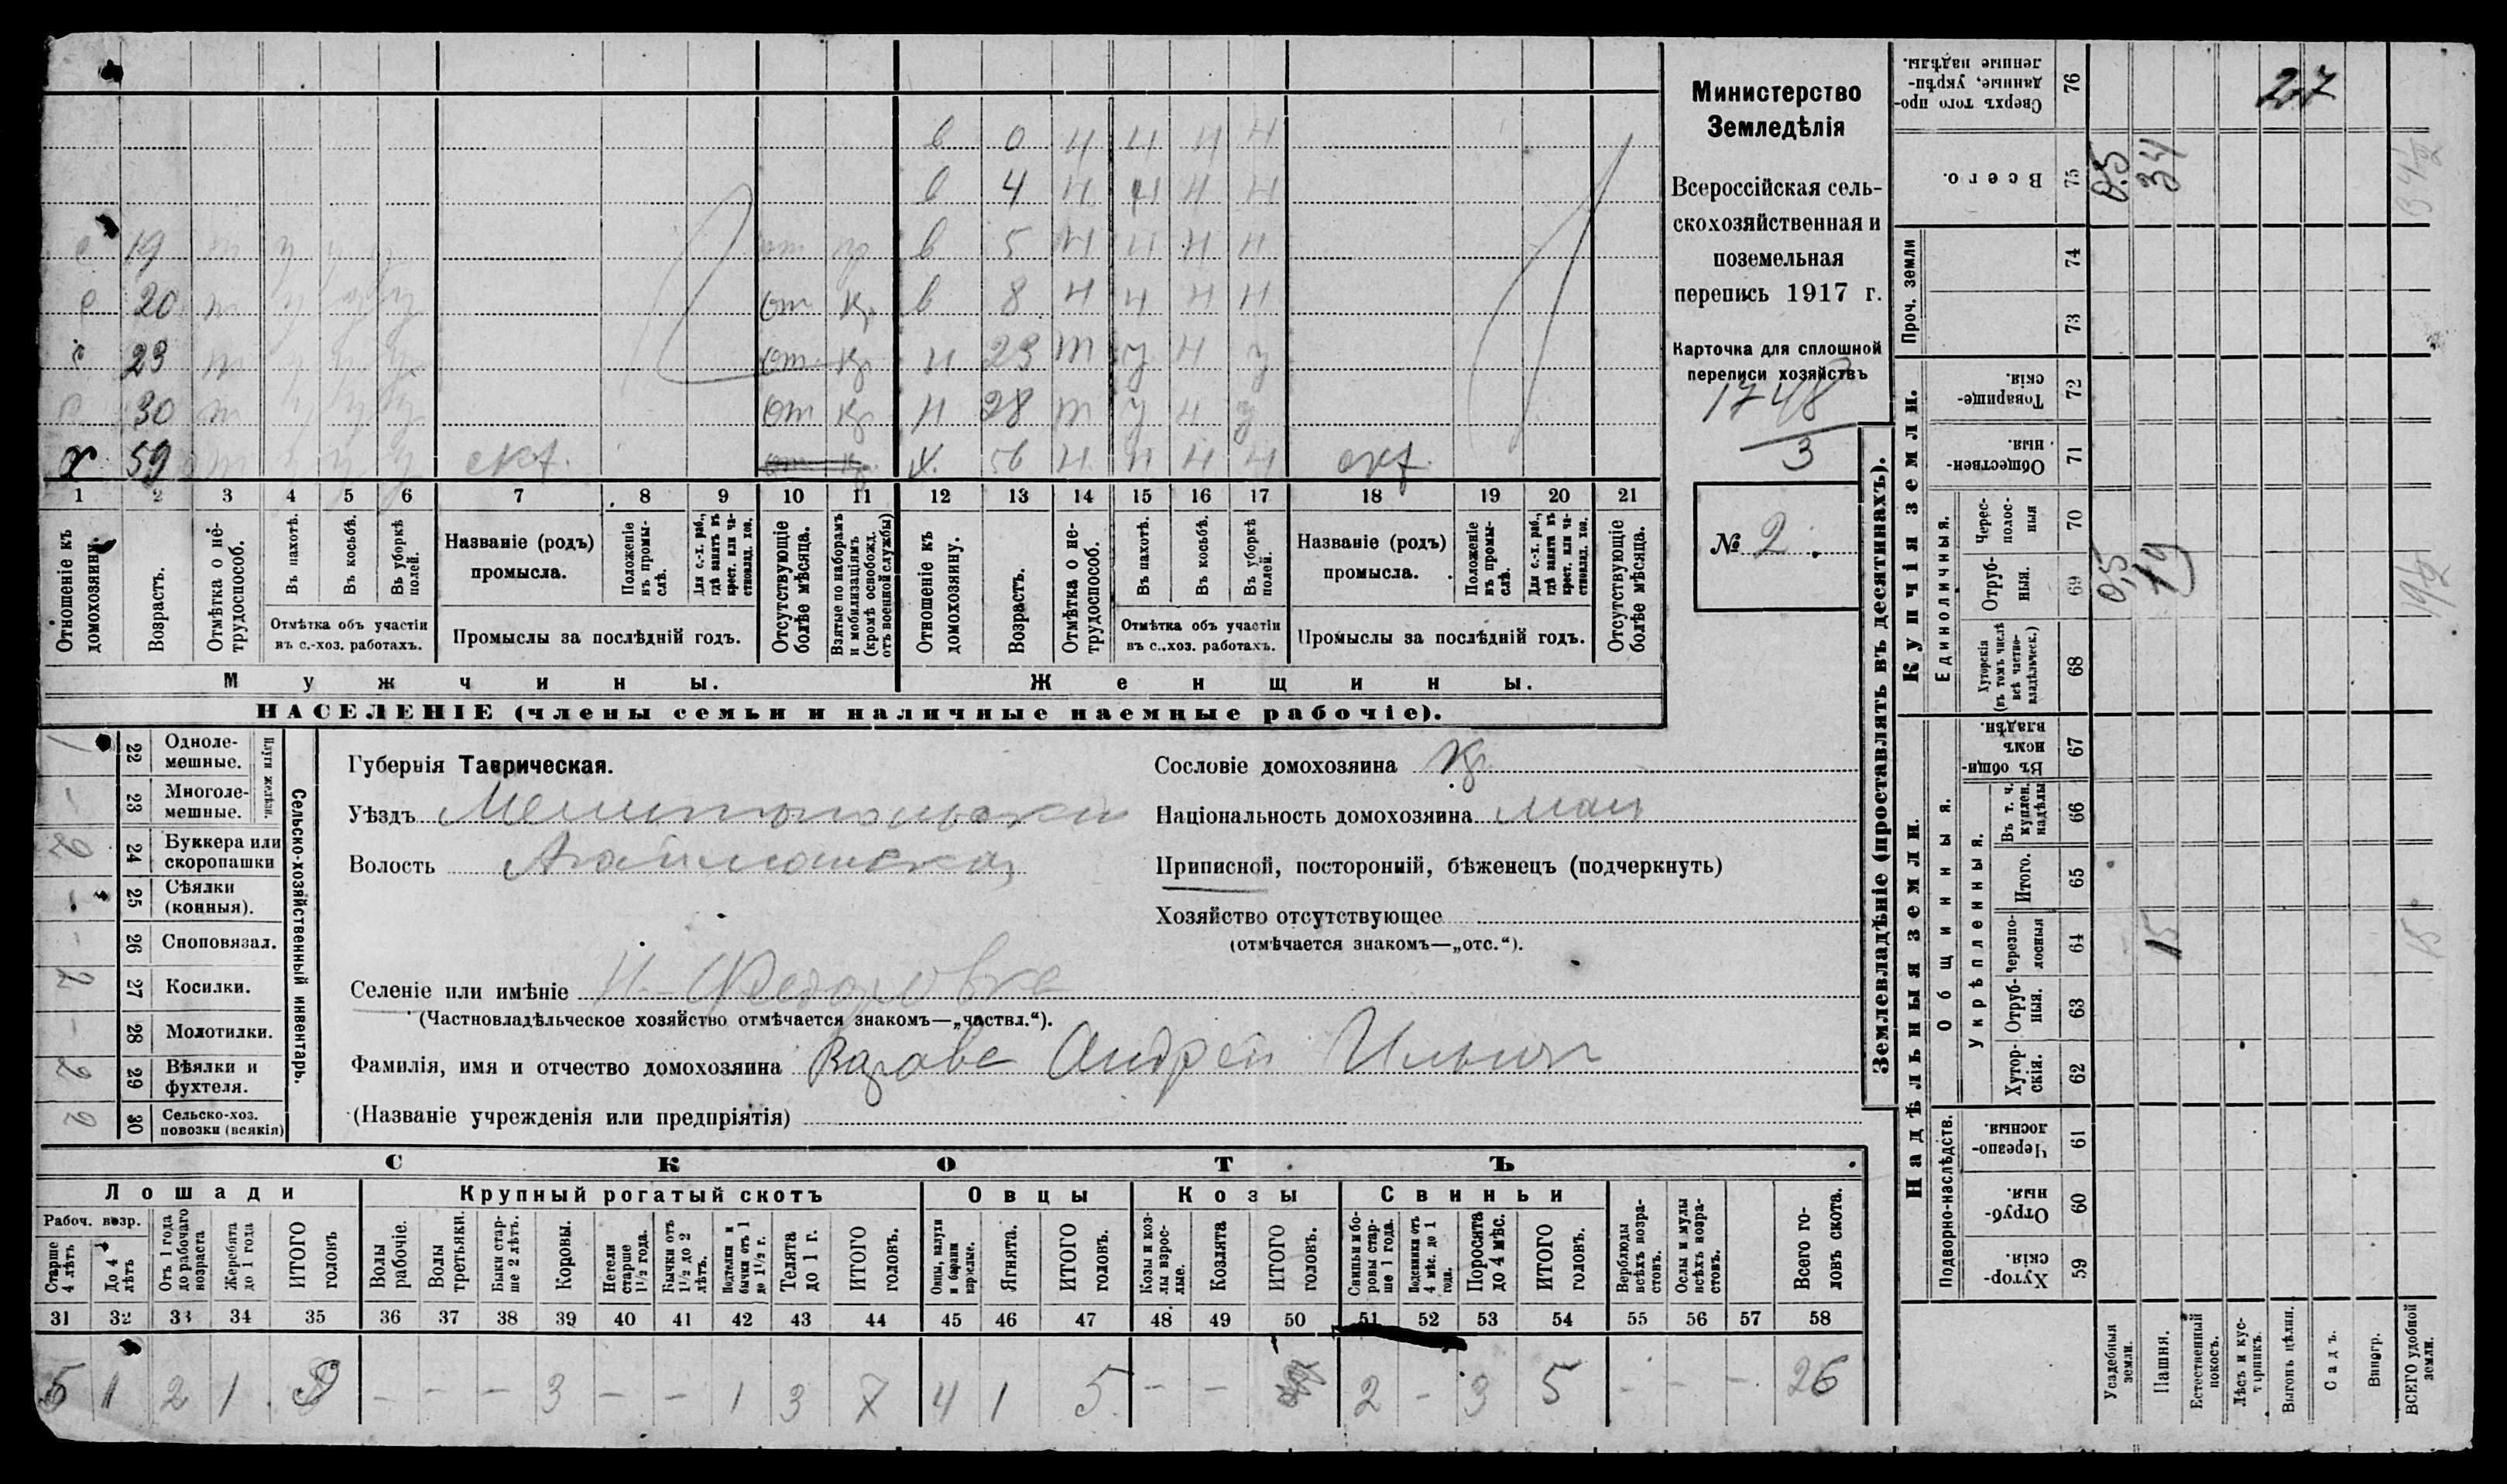 Министерство
Земледѣлія
Всероссійская сель-
скохозяйственная и
поземельная
перепись 1917 г.
Карточка для сплошной
переписи хозяйствъ
1748
3
№ 2.
в 0 н н н н
в 4 н н н н
с 19 т в 5 н н н н
с 20 т от кр в 8 н н н н
с 23 т от кр н 23 т у н у
с 30 т от кр н 28 т у н у
х 59 скх. от кр. х. 56 н н н н скх.
1 2 3 4 5 6 7 8 9 10 11 12 13 14 15 16 17 18 19 20 21
Отношеніе къ домохозяину.
Возрастъ.
Отмѣтка о не-трудоспособ.
Въ пахотѣ.
Въ косьбѣ.
Въ уборкѣ полей.
Отмѣтка объ участіи
въ с.-хоз. работахъ.
Названіе (родъ)
промысла.
Положеніе въ промы-слѣ.
Для с.-х. раб., гдѣ занятъ въ крест. или ча-стновлад. хоз.
Промыслы за послѣдній годъ.
Отсутствующіе болѣе мѣсяца.
Взятые по наборамъ и мобилизаціямъ (кромѣ освобожд. отъ военной службы)
Отношеніе къ домохозяину.
Возрастъ.
Отмѣтка о не-трудоспособ.
Въ пахотѣ.
Въ косьбѣ.
Въ уборкѣ полей.
Отмѣтка объ участіи
въ с..хоз. работахъ.
Названіе (родъ)
промысла.
Положеніе въ промы-слѣ.
Для с.-х. раб., гдѣ занята въ крест. или ча-стновлад. хоз.
Промыслы за послѣдній годъ.
Отсутствующіе болѣе мѣсяца.
Мужчины.
Женщины.
НАСЕЛЕНІЕ (члены семьи и наличные наемные рабочіе).
Сельско-хозяйственный инвентарь.
Плуги желѣзн.
1 22 Одноле-мешные.
- 23 Многоле-мешные.
2 24 Буккера или скоропашки
- 25 Сѣялки (конныя).
- 26 Сноповязал.
2 27 Косилки.
- 28 Молотилки.
2 29 Вѣялки и фухтеля.
2 30 Сельско-хоз. повозки (всякія)
Губернія Таврическая.
Уѣздъ Мелитопольскій
Волость
Селеніе или имѣніе Н-Федоровка
(Частновладѣльческое хозяйство отмѣчается знакомъ—„частвл.“).
Фамилія, имя и отчество домохозяина Андрей Ильич
(Названіе учрежденія или предпріятія)
Сословіе домохозяина кр.
Національность домохозяина мал
Приписной, посторонній, бѣженецъ (подчеркнуть)
Хозяйство отсутствующее
(отмѣчается знакомъ—„отс.“).
СКОТЪ
Лошади
Крупный рогатый скотъ
Овцы
Козы
Свиньи
Рабоч. возр.
Старше 4 лѣтъ
До 4 лѣтъ
Отъ 1 года до рабочаго возраста
Жеребята до 1 года
ИТОГО головъ
Волы рабочіе.
Волы третьяки.
Быки стар-ше 2 лѣтъ.
Коровы.
Нетели старше 1½ года.
Бычки отъ 1½ до 2 лѣтъ.
Подтелки и бычки отъ 1 до 1½ г.
Телята до 1 г.
ИТОГО головъ.
Овцы, валухи и бараны взрослые.
Ягнята.
ИТОГО головъ.
Козы и коз-лы взрос-лые.
Козлята
ИТОГО головъ.
Свиньи и бо-ровы стар-ше 1 года.
Подсвинки отъ 4 мѣс. до 1 года.
Поросята до 4 мѣс.
ИТОГО головъ.
Верблюды всѣхъ возра-стовъ.
Ослы и мулы всѣхъ возра-стовъ.
Всего го-ловъ скота.
31 32 33 34 35 36 37 38 39 40 41 42 43 44 45 46 47 48 49 50 51 52 53 54 55 56 57 58
5 1 2 1 9 - - - 3 - - 1 3 7 4 1 5 - - 2 - 3 5 - - - 26
Землевладѣніе (проставлять въ десятинахъ).
Надѣльныя земли.
Купчія земли.
Проч. земли
Подворно-наслѣдств.
Общинныя.
Укрѣпленныя.
Единоличныя.
Сверхъ того про-данные, укрѣп-ленные надѣлы. 76 27
Всего. 75 0,5 34 34½
74
73
Товарище-скія. 72
Обществен-ныя. 71
Черес-полос-ныя 70
Отруб-ныя. 69 0,5 19 19½
Хуторскія (въ томъ числѣ всѣ частно-владѣльческ.) 68
Въ общи-номъ владѣн. 67
Въ т. ч. куплен. надѣлы 66
Итого. 65
Черезпо-лосныя 64 15 15
Отруб-ныя. 63
Хутор-скія. 62
Черезпо-лосныя. 61
Отруб-ныя. 60
Хутор-скія. 59
Усадебныя земли.
Пашня.
Естественный покосъ.
Лѣсъ и кус-тарникъ.
Выгонъ цѣлин.
Садъ.
Виногр.
ВСЕГО удобной земли.